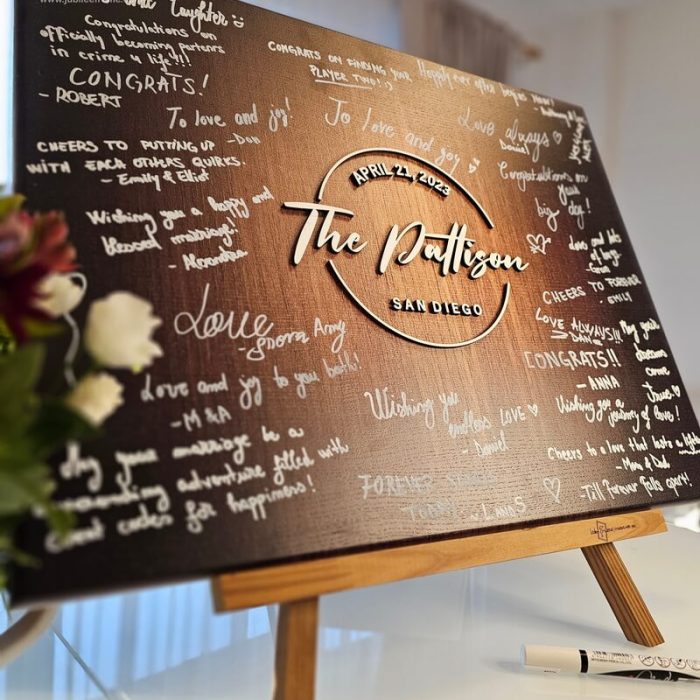 Laughter
Congratulations on
officially becoming partners
in crime 4 life!!!
CONGRATS!
- ROBERT
CONGRATS ON FINDING YOUR
PLAYER TWO! :)
Happily ever after begins now!
To love and joy!
- Dan
To love and joy
Love always ♡
Daniel
CHEERS TO PUTTING UP
WITH EACH OTHERS QUIRKS.
- Emily & Elliot
Congratulations on
your
big day!
Wishing you a happy and
blessed marriage!
APRIL 21, 2023
The Pattison
SAN DIEGO
love and lots
of hugs
CHEERS TO FOREVER
- EMILY
LOVE ALWAYS!!!
DANE
Love
CONGRATS!!
- ANNA
May your
dreams
come
true ♡
Wishing you a
journey of love!
Love and joy to you both!
- M & A
Wishing you
endless LOVE ♡
- Daniel
Cheers to a love that lasts a lifetime
- Mom & Dad
May your marriage be a
adventure filled with
for happiness!
FOREVER STARTS
TODAY
♡ - Till forever falls apart!